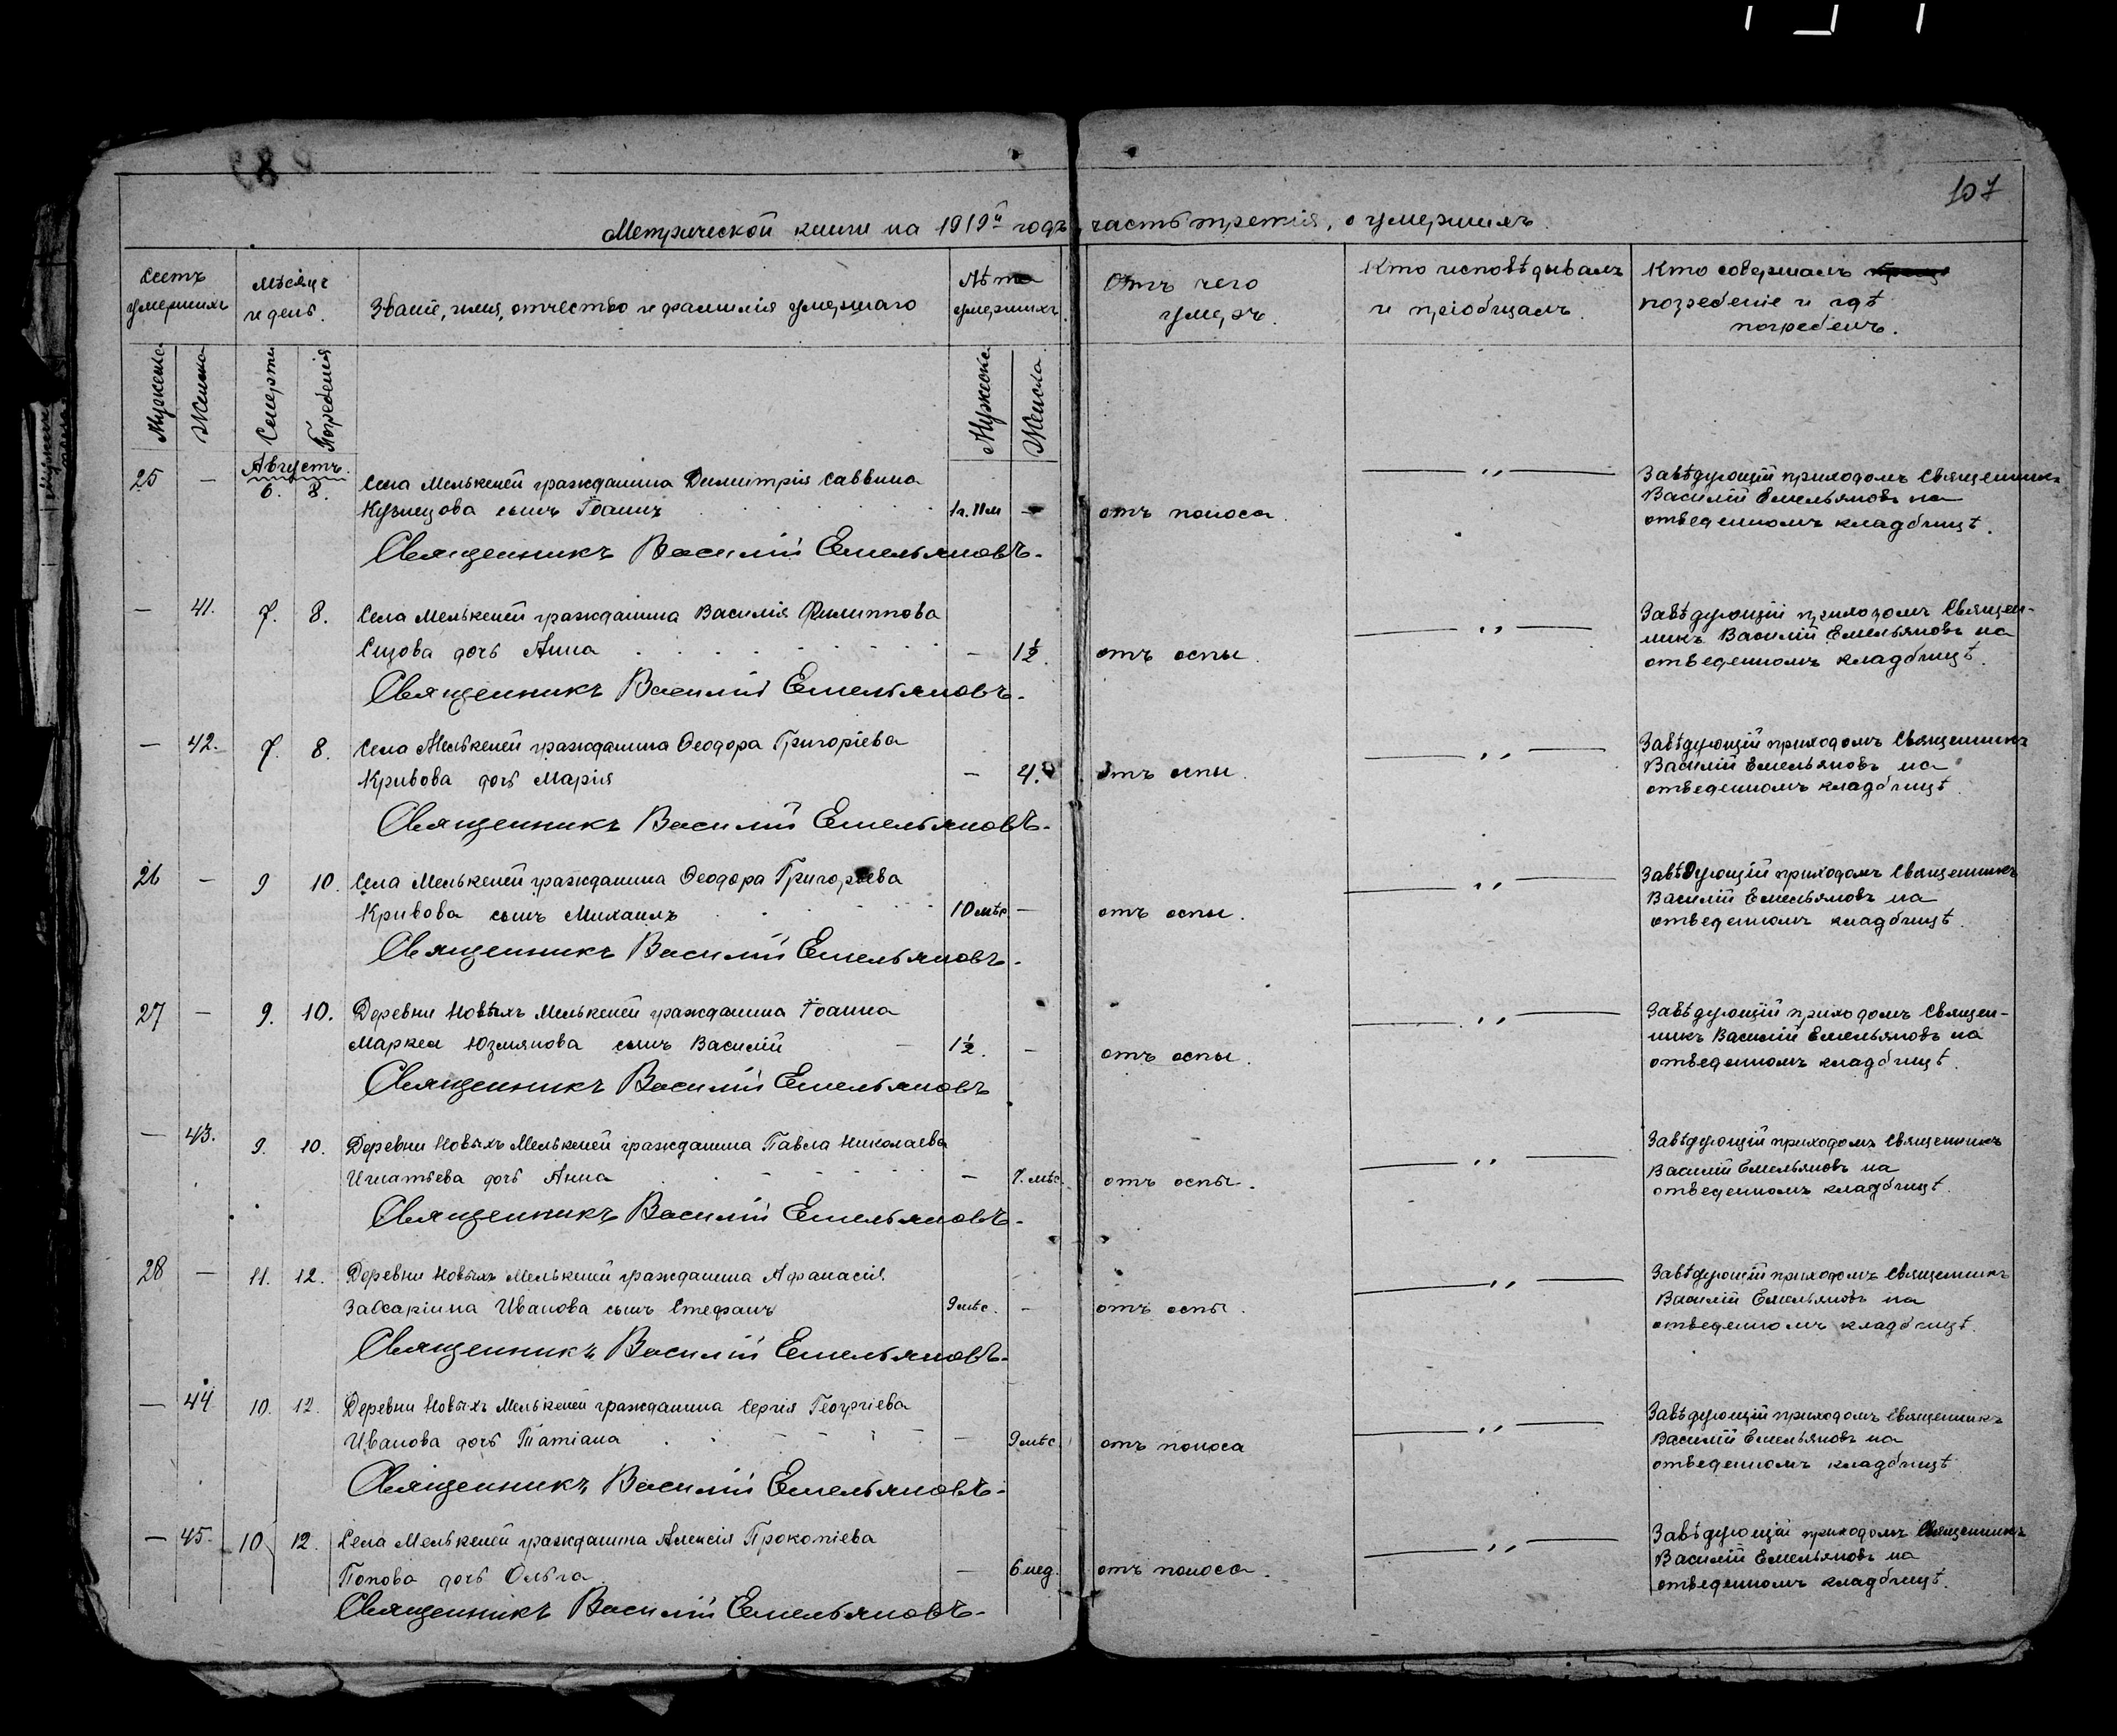 107
Метрической книги на 1919й годъ, часть третія, о умершихъ.
Счетъ умершихъ
Мѣсяцъ и день.
Званіе, имя, отчество и фамилія умершаго
Лѣта умершихъ
Отъ чего умеръ.
Кто исповѣдывалъ и пріобщалъ.
Кто совершалъ погребеніе и гдѣ погребенъ.
Мужеска
Женска
Смерти
Погребенія
Мужеска
Женска
Августъ.
25 — 6. 8. Села Мелькеней гражданина Димитрія Саввина
Кузнецова сынъ Іоаннъ 1 г. 11 м — отъ поноса.
Священникъ Василій Емельяновъ.
Завѣдующій приходомъ Священникъ
Василій Емельяновъ на
отведенномъ кладбищѣ.
— 41. 7. 8. Села Мелькеней гражданина Василія Филиппова
Сизова дочь Анна — 1½. отъ оспы.
Священникъ Василій Емельяновъ.
Завѣдующій приходомъ Священ-
никъ Василій Емельяновъ на
отведенномъ кладбищѣ.
— 42. 7. 8. Села Мелькеней гражданина Ѳеодора Григоріева
Кривова дочь Марія — 4. отъ оспы.
Священникъ Василій Емельяновъ.
Завѣдующій приходомъ Священникъ
Василій Емельяновъ на
отведенномъ кладбищѣ.
26 — 9 10. Села Мелькеней гражданина Ѳеодора Григоріева
Кривова сынъ Михаилъ 10 мѣс. — отъ оспы.
Священникъ Василій Емельяновъ.
Завѣдующій приходомъ Священникъ
Василій Емельяновъ на
отведенномъ кладбищѣ.
27 — 9. 10. Деревни Новыхъ Мелькеней гражданина Іоанна
Маркел Юзмянова сынъ Василій — 1½. — отъ оспы.
Священникъ Василій Емельяновъ
Завѣдующій приходомъ Священ-
никъ Василій Емельяновъ на
отведенномъ кладбищѣ.
— 43. 9. 10. Деревни Новыхъ Мелькеней гражданина Павла Николаева
Игнатьева дочь Анна — 7. мѣс. отъ оспы.
Священникъ Василій Емельяновъ.
Завѣдующій приходомъ Священникъ
Василій Емельяновъ на
отведенномъ кладбищѣ.
28 — 11. 12. Деревни Новыхъ Мелькеней гражданина Афанасія
Иванова сынъ Стефанъ 9 мѣс. — отъ оспы.
Священникъ Василій Емельяновъ.
Завѣдующій приходомъ Священникъ
Василій Емельяновъ на
отведенномъ кладбищѣ.
— 44 10. 12. Деревни Новыхъ Мелькеней гражданина Сергія Георгіева
Иванова дочь Татіана — 9 мѣс. отъ поноса
Священникъ Василій Емельяновъ.
Завѣдующій приходомъ Священникъ
Василій Емельяновъ на
отведенномъ кладбищѣ
— 45. 10. 12. Села Мелькеней гражданина Алексія Прокопіева
Попова дочь Ольга. — 6 нед. отъ поноса.
Священникъ Василій Емельяновъ.
Завѣдующій приходомъ Священникъ
Василій Емельяновъ на
отведенномъ кладбищѣ.